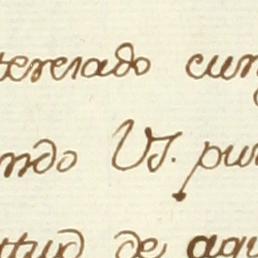 teresado cum
ndo VS. pue
ttud de agu